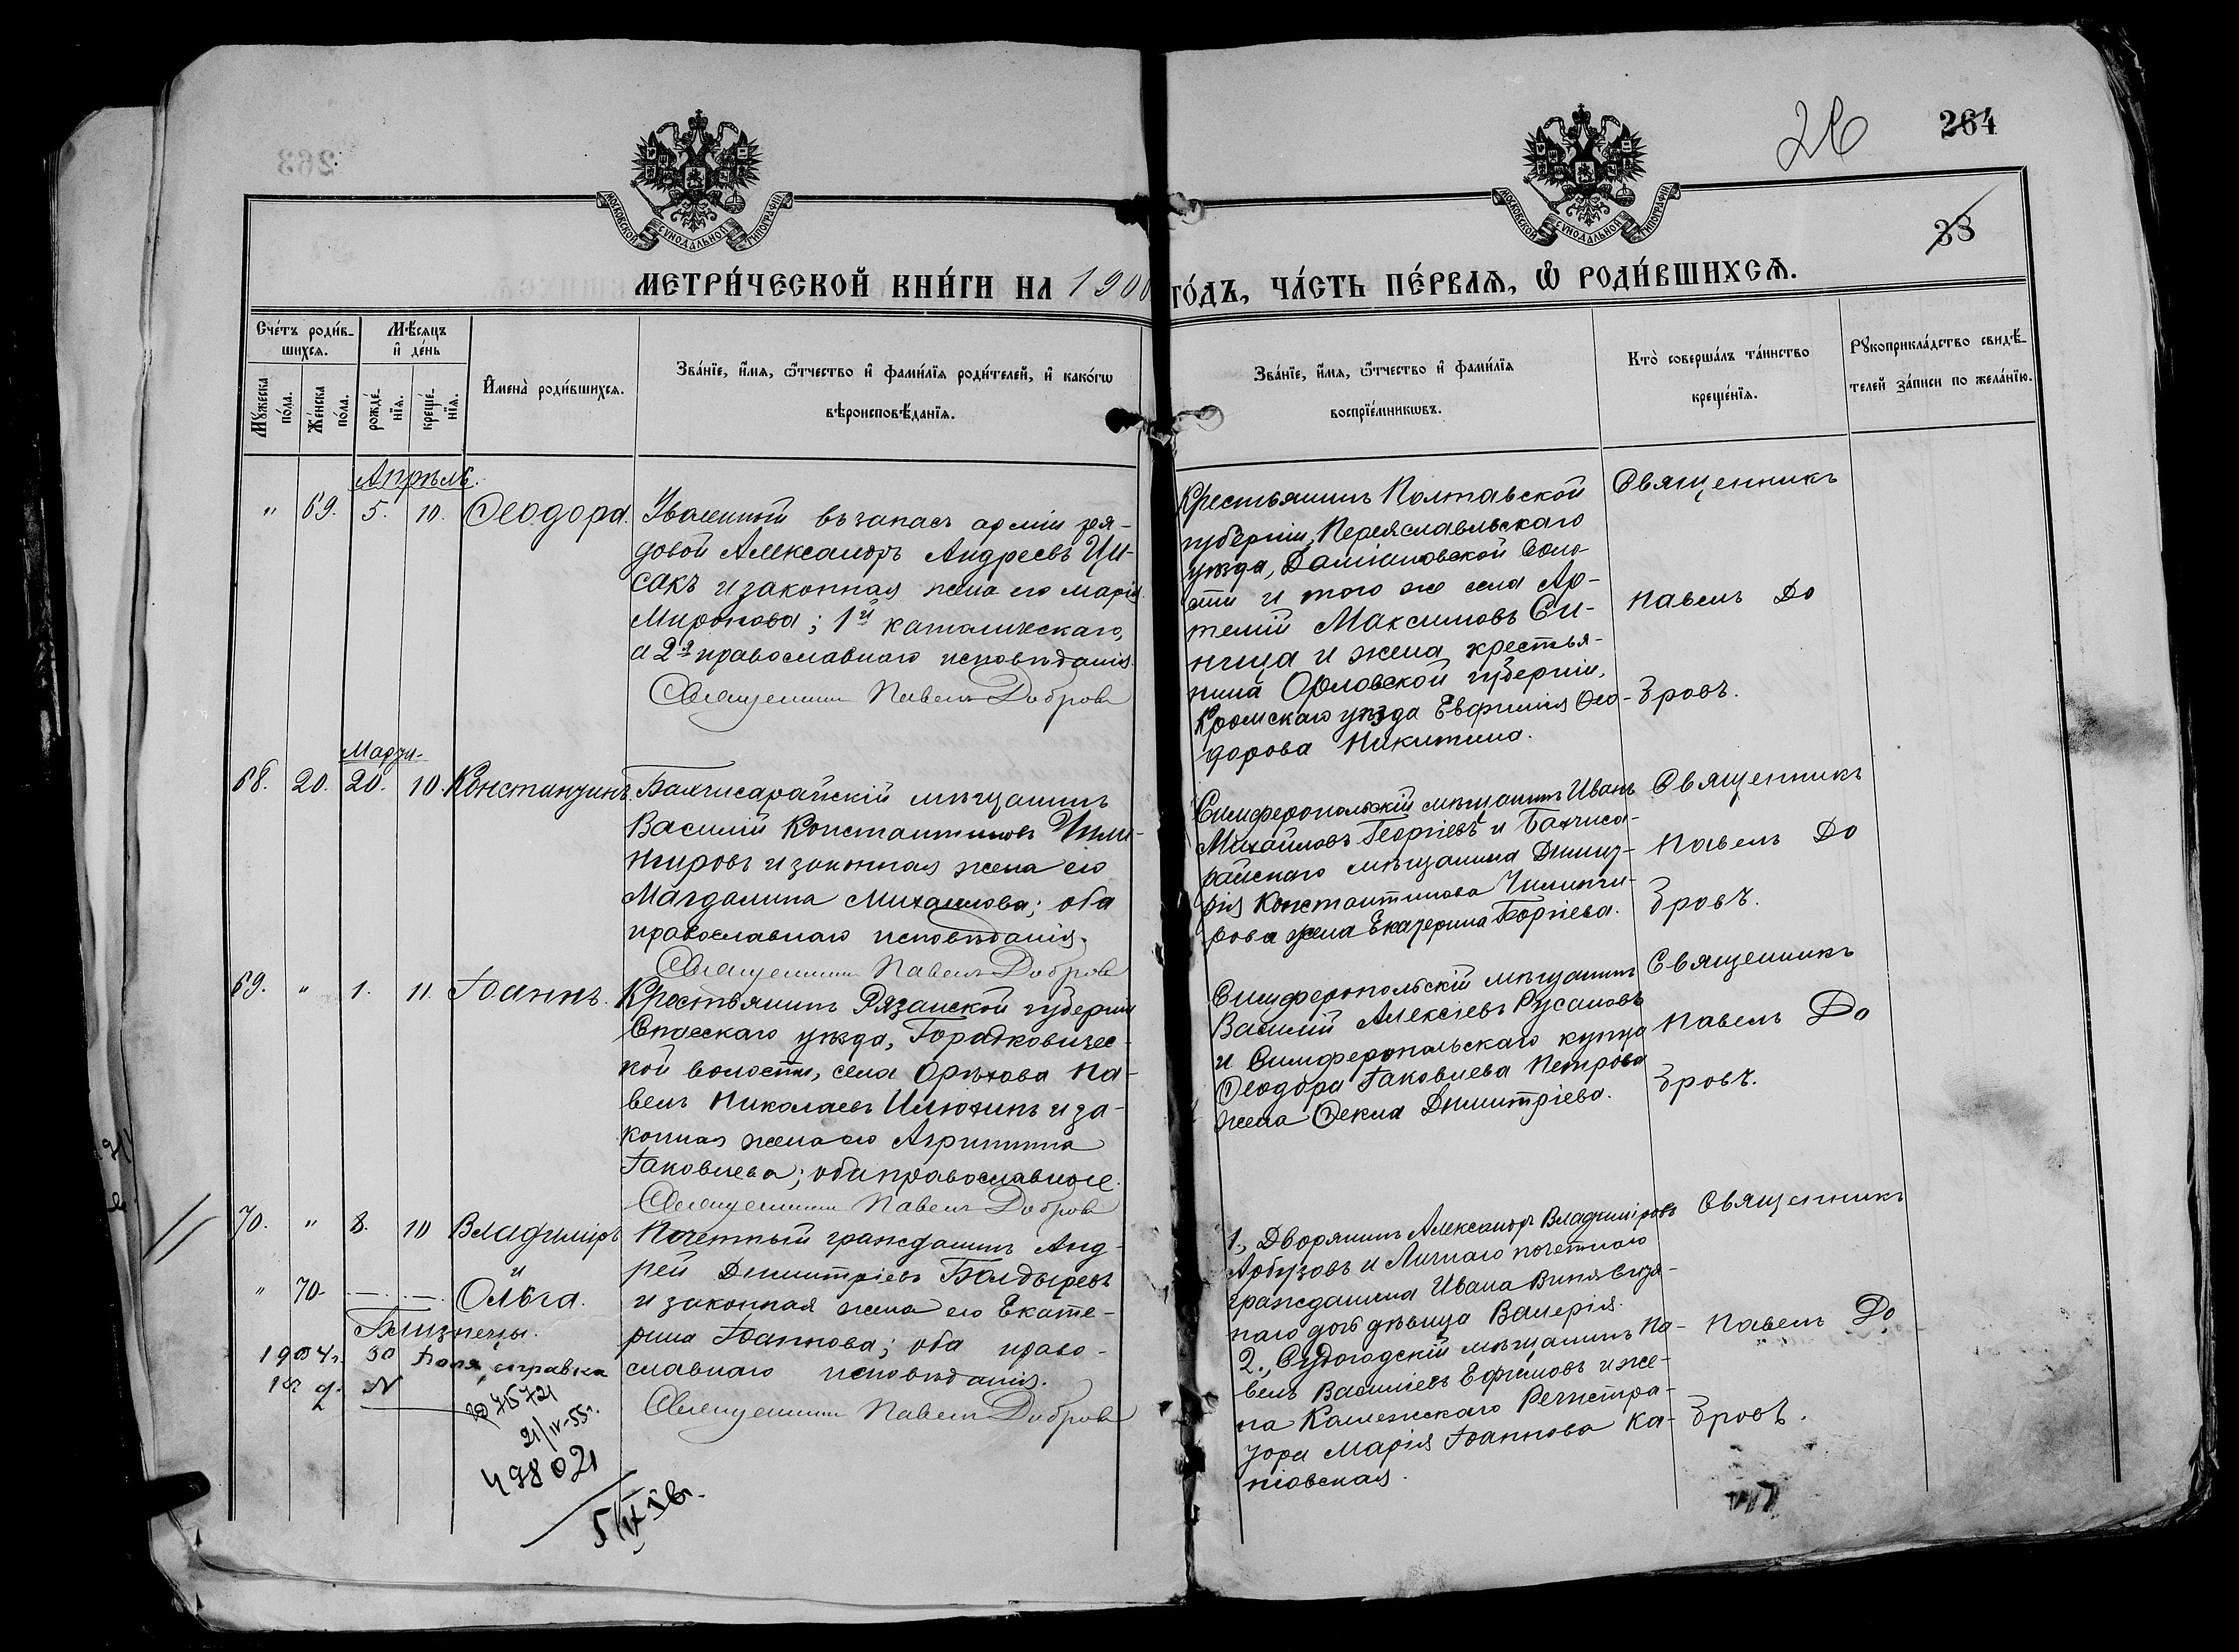 264
26
38
263
МОСКОВСКОЙ СѴНОДАЛЬНОЙ ТИПОГРАФІИ
МОСКОВСКОЙ СѴНОДАЛЬНОЙ ТИПОГРАФІИ
МЕТРИ́ЧЕСКОЙ КНИ́ГИ НА 1900 ГО́ДЪ, ЧА́СТЬ ПЕ́РВАЯ, Ѽ РОДИ́ВШИХСѦ.
Сче́тъ роди́в-
шихся.
Мѣ́сяцъ
и҆ де́нь
Мꙋ́жеска
по́ла.
Же́нска
по́ла.
рожде́-
нїя.
креще́-
нїя.
И҆мена̀ роди́вшихся.
Зва́нїе, и҆́мя, ѻ҆́тчество и҆ фами́лїя роди́телей, и҆ како́гѡ
вѣроисповѣ́данїя.
Зва́нїе, и҆́мя, ѻ҆́тчество и҆ фами́лїя
воспрїе́мникѡвъ.
Кто̀ соверша́лъ та́инство
креще́нїя.
Рꙋкоприкла́дство свидѣ́-
телей за́писи по жела́нїю.
Апрѣль.
" 69. 5. 10. Ѳеодора.
Уволенный въ запасъ арміи ря-
довой Александръ Андреевъ Ци-
сакъ и законная жена его Марія
Миронова; 1й католическаго,
а 2я православнаго исповѣданія.
Священникъ Павелъ Добровъ
Крестьянинъ Полтавской
губерніи, Переяславльскаго
уѣзда, Даміановской воло-
сти и того же села Ар-
темій Максимовъ Си-
ница и жена крестья-
нина Орловской губерніи,
Кромскаго уѣзда Евфимія Ѳео-
дорова Никитина.
Священникъ
Павелъ До
бровъ.
Марта
68. 20. 20. 10. Константинъ.
Бахчисарайскій мѣщанинъ
Василій Константиновъ Чили-
нгировъ и законная жена его
Магдалина Михаилова; оба
православнаго исповѣданія.
Священникъ Павелъ Добровъ
Симферопольскій мѣщанинъ Иванъ
Михайловъ Георгіевъ и Бахчиса-
райскаго мѣщанина Димит-
рія Константинова Чилинги-
рова жена Екатерина Георгіева.
Священникъ
Павелъ До
бровъ.
69. " 1. 11. Іоаннъ.
Крестьянинъ Рязанской губерніи
Спасскаго уѣзда, Городковичес-
кой волости, села Орѣхова Па-
велъ Николаевъ Илюхинъ и за-
конная жена его Агриппина
Іаковлева; оба православные.
Священникъ Павелъ Добровъ
Симферопольскій мѣщанинъ
Василій Алексіевъ Русановъ
и Симферопольскаго купца
Ѳеодора Іаковлева Петрова
жена Ѳекла Димитріева.
Священникъ
Павелъ До
бровъ.
70. " 8. 10 Владиміръ
и
" 70. — . — . Ольга.
Близнецы.
Почетный гражданинъ Анд-
рей Димитріевъ Болдыревъ
и законная жена его Екате-
рина Іоаннова; оба право-
славнаго исповѣданія.
Священникъ Павелъ Добровъ
1., Дворянинъ Александръ Владиміровъ
Арбузовъ и Личнаго почетнаго
гражданина Ивана
дочь дѣвица Валерія.
2., Судогодскій мѣщанинъ Па-
велъ Василіевъ Ефимовъ и же-
на Коллежскаго Регистра-
тора Марія Іоаннова Ка-
ніовская.
Священникъ
Павелъ До
бровъ.
1904г. 30 справка
№
21/IV-55г.
498021